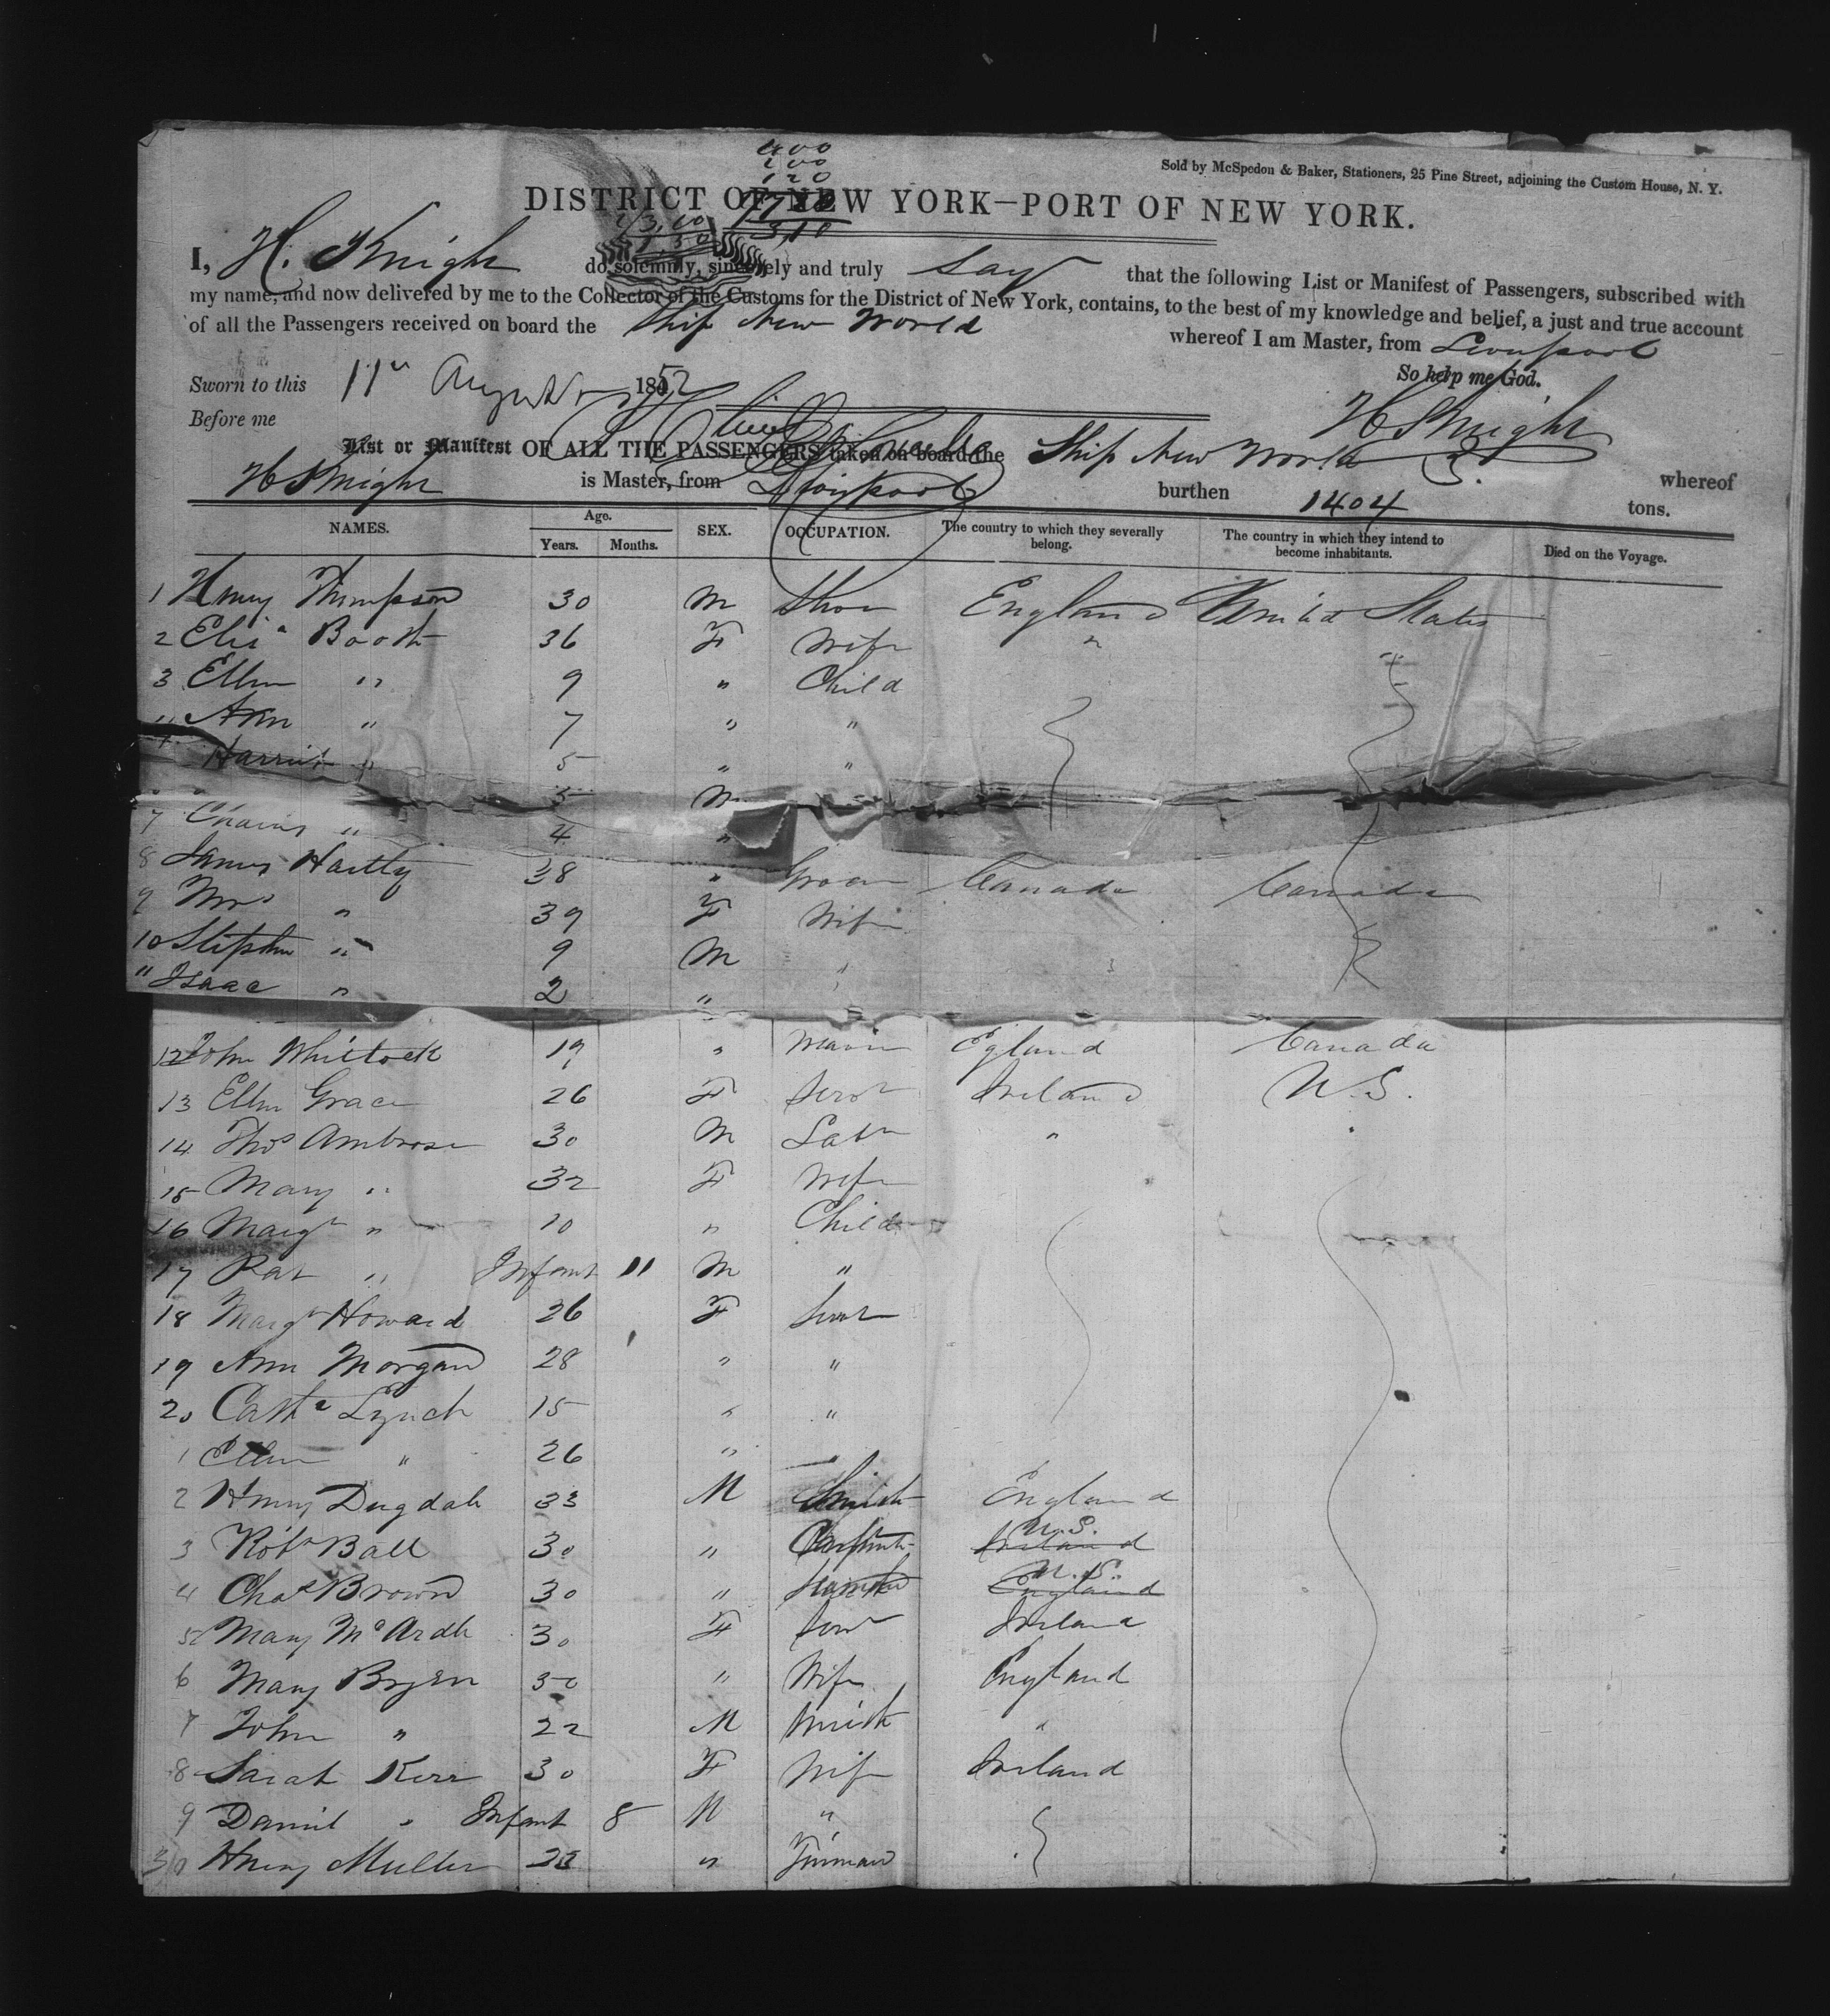 400
200
120
Sold by McSpedon & Baker, Stationers, 25 Pine Street, adjoining the Custom House, N. Y.
DISTRICT OF NEW YORK—PORT OF NEW YORK.
I, H. Knight do solemnly, sincerely and truly say that the following List or Manifest of Passengers, subscribed with
my name, and now delivered by me to the Collector of the Customs for the District of New York, contains, to the best of my knowledge and belief, a just and true account
of all the Passengers received on board the Ship New World whereof I am Master, from Liverpool
So help me God.
Sworn to this 11th August 1852
H Knight
Before me
List or Manifest OF ALL THE PASSENGERS taken on board the Ship New World whereof
H Knight is Master, from Liverpool burthen 1404 tons.
NAMES. Age. Years. Months. SEX. OCCUPATION. The country to which they severally belong. The country in which they intend to become inhabitants. Died on the Voyage.
1 Henry Thompson 30 M Shoe England United States
2 Eliz a Booth 36 F Wife "
3 Ellen " 9 " Child
Ann " 7 " "
Harriet " 5 " "
5 M
7 Charles " 4 "
8 James Hartley 38 " Groom Canada Canada
9 Mrs " 39 F Wife
10 Stephen " 9 M "
11 Isaac " 2 "
12 John Whitlock 19 " England Canada
13 Ellen Grace 26 F Servt Ireland U.S.
14 Thos Ambrose 30 M Labr " "
15 Mary " 32 F Wife
16 Margt " 10 " Child
17 Pat " Infant 11 M "
18 Margt Howard 26 F Servt
19 Ann Morgan 28 " "
20 Cathe Lynch 15 " "
1 Ellen " 26 "
2 Henry Dugdale 33 M Smith England
3 Robt Ball 30 " Carpenter U.S. Ireland
4 Chas Brown 30 " U.S. England
5 Mary McArdle 30 F Serv Ireland
6 Mary Bryen 30 " Wife England
7 John " 22 M Smith "
8 Sarah Kerr 30 F Wife Ireland
9 Daniel " Infant 8 M "
30 Henry Muller 23 " Finman